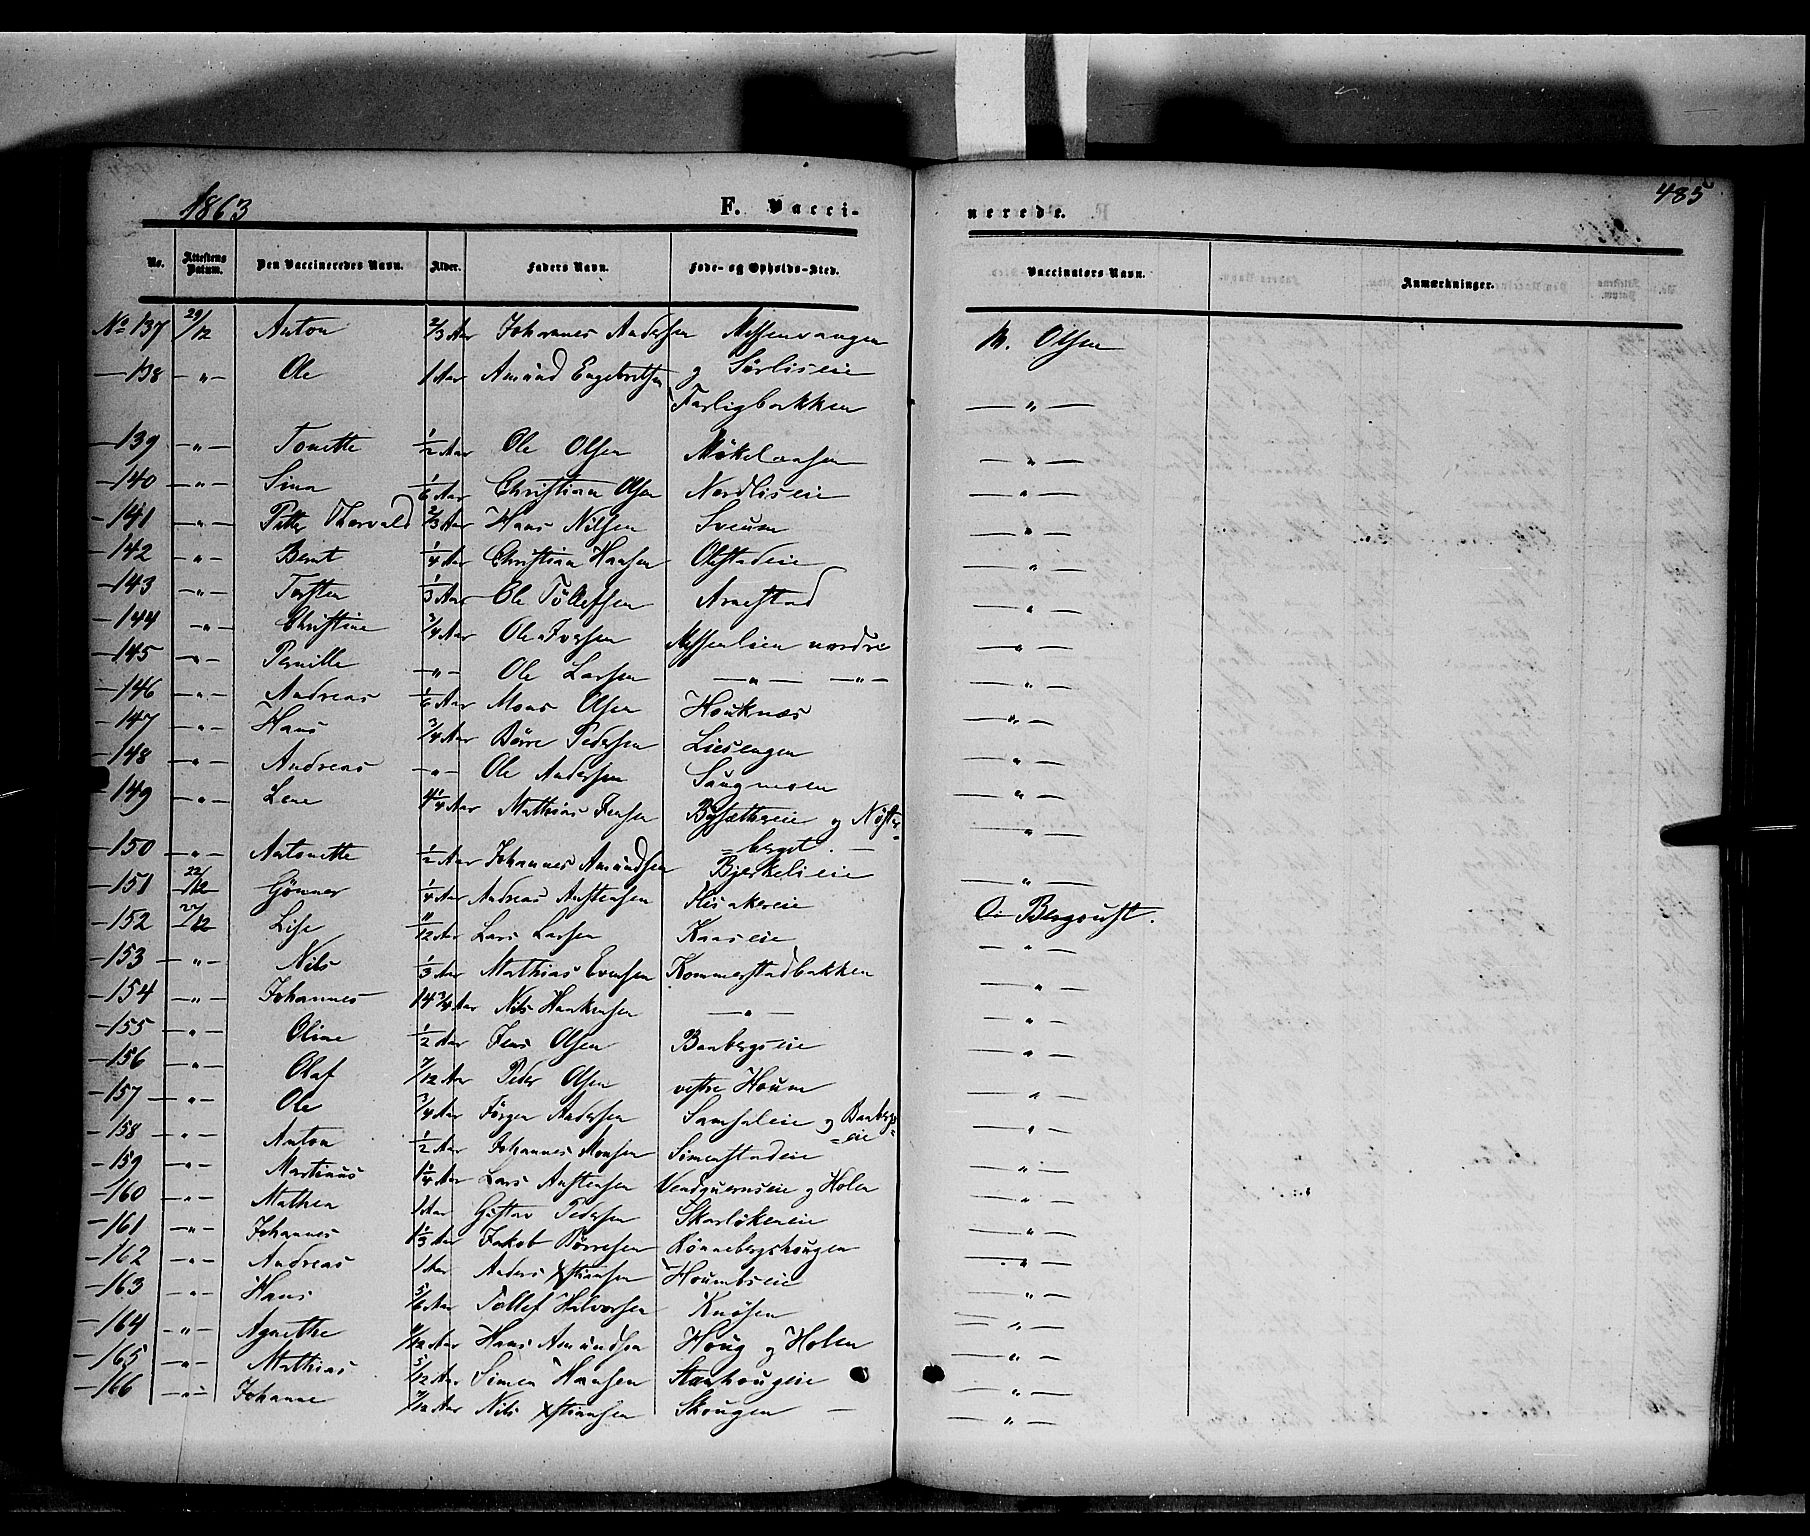 1863 F. Vacci- nerede. 485
No. Attestens Datum. Den Vaccineredes Navn. Alder. Faders Navn. Føde- og Opholds-Sted. Vaccinators Navn. Anmærkninger.
No 137 29/12 Anton 2/3 Aar Johannes Andersen M. Olsen
- 138 - " - Ole 1 Aar Amund Engebretsen og Sørliseie
Farligbakken - " -
- 139 - " - Tonette 1/2 Aar Ole Olsen - " -
- 140 - " - Sina 1/6 Aar Christian Olsen Nordliseie - " -
- 141 - " - Petter Thorvald 2/3 Aar Hans Nilsen Sveum - " -
- 142 - " - Bernt 1/4 Aar Christian Hansen Olestadeie - " -
- 143 - " - Torsten 1/3 Aar Ole Tollefsen Arnestad - " -
- 144 - " - Christine 3/4 Aar Ole Iversen nordre - " -
- 145 - " - Pernille - " - Ole Larsen - " - - " - - " -
- 146 - " - Andreas 1/6 Aar Mons Olsen Houknæs - " -
- 147 - " - Hans 3/4 Aar Børre Pedersen Liesengen - " -
- 148 - " - Andreas - " - Ole Andersen Saugmoen - " -
- 149 - " - Lene 4 1/4 Aar Mathias Jensen Bysæthereie og Nøste- - " -
= berget. -
- 150 - " - Antonette 1/2 Aar Johannes Amundsen Bjerkelieie - " -
- 151 22/12 Gunner 1/4 Aar Andreas Austensen Hisakereie O. Bergqvist.
- 152 27/12 Lise 11/12 Aar Lars Larsen Kaaseie - " -
- 153 - " - Nils 1/3 Aar Mathias Evensen Kommerstadbakken - " -
- 154 - " - Johannes 14 3/4 Aar Nils Haakensen - " - - " -
- 155 - " - Oline 1/2 Aar Jens Olsen Baabergseie - " -
- 156 - " - Olaf 7/12 Aar Peder Olsen vestre Houm - " -
- 157 - " - Ole 3/4 Aar Jørgen Andersen Samsaleie og Baabergs= - " -
=eie
- 158 - " - Anton 1/2 Aar Johannes Monsen Simenstadeie - " -
- 159 - " - Martinus 1 1/4 Aar Lars Austensen Vendquernseie og Holen - " -
- 160 - " - Mathea 1 Aar Gustav Pedersen Skarløkereie - " -
- 161 - " - Johannes 1 1/3 Aar Jakob Børresen Rønnebergshougen - " -
- 162 - " - Andreas 1 Aar Anders Xstiansen Houmbseie - " -
- 163 - " - Hans 5/6 Aar Tollef Halvorsen Knøsen - " -
- 164 - " - Agnethe 11/12 Aar Hans Amundsen Houg og Holen - " -
- 165 - " - Mathias 5/12 Aar Simen Hansen Staahougeie - " -
- 166 - " - Johanne 7/12 Aar Nils Xstiansen Skougen - - " -